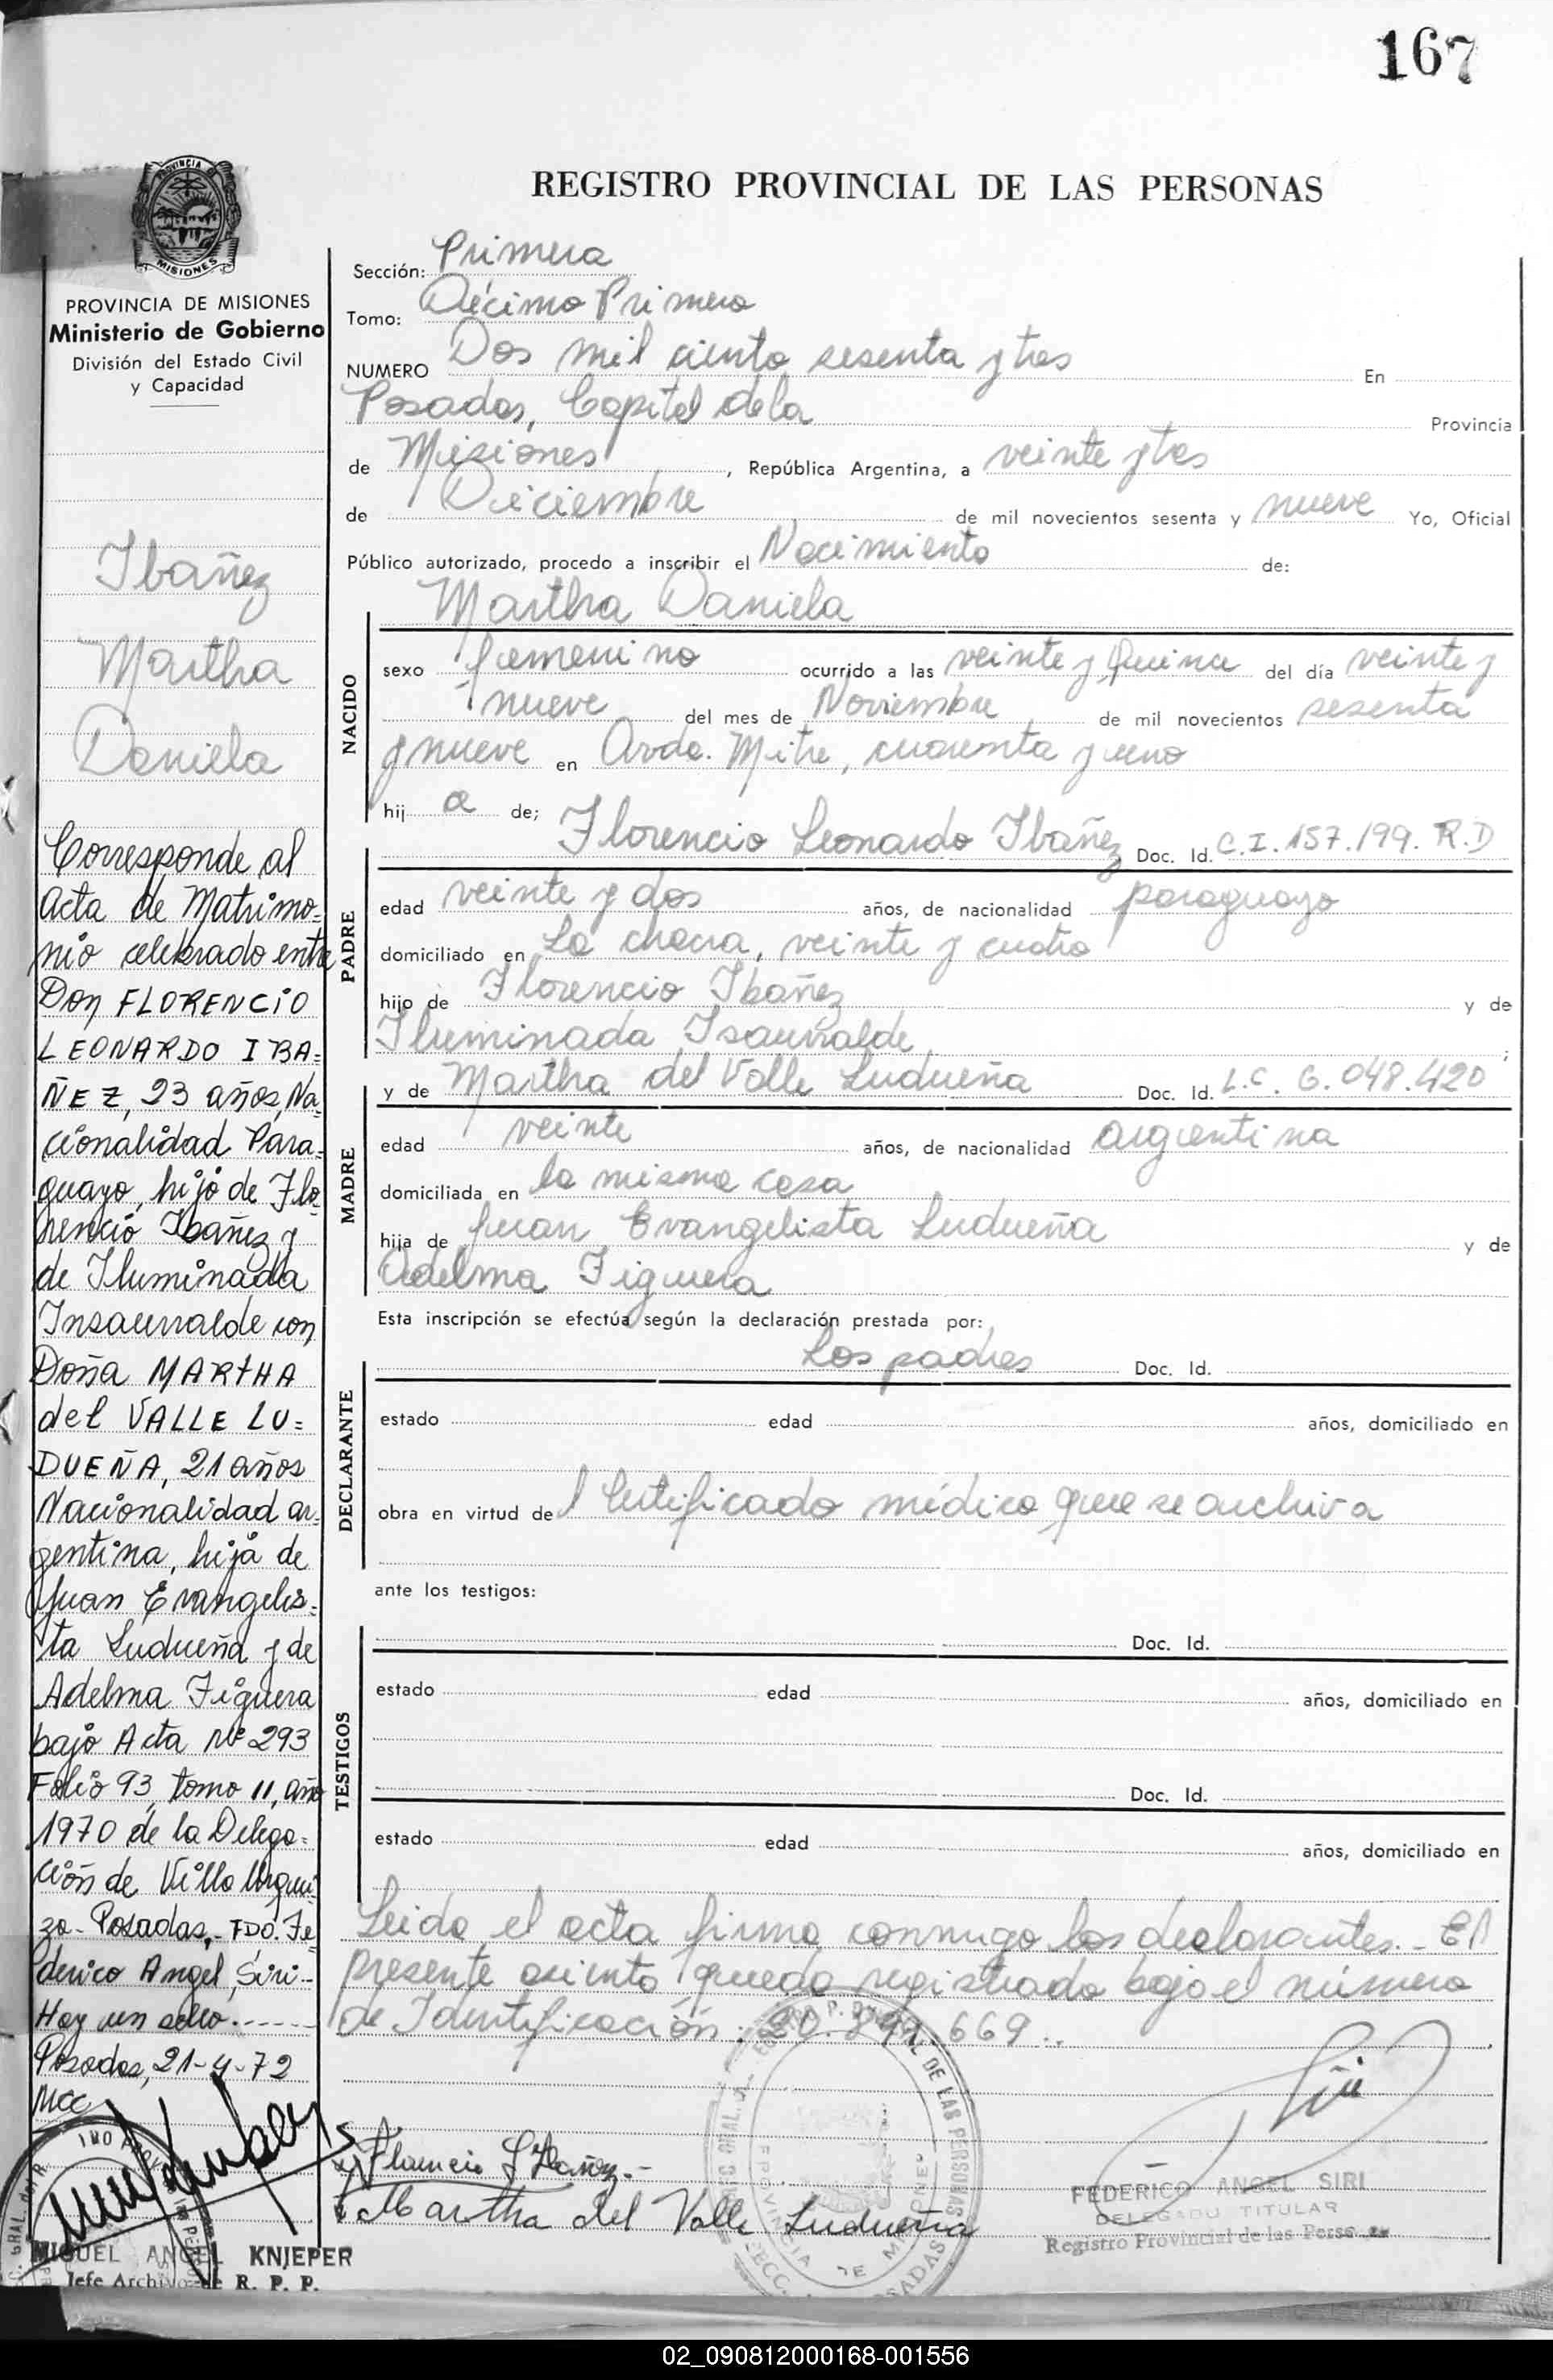 167
PROVINCIA
MISIONES
REGISTRO PROVINCIAL DE LAS PERSONAS
PROVINCIA DE MISIONES
Ministerio de Gobierno
División del Estado Civil
y Capacidad
Ibañez
Martha
Daniela
Corresponde al
Acta de Matrimo=
nio celebrado entre
Don FLORENCIO
LEONARDO IBA=
ÑEZ, 23 años, Na=
cionalidad Para=
guayo, hijo de Flo=
rencio Ibañez y
de Iluminada
Insaurralde con
Doña MARTHA
del VALLE LU=
DUEÑA, 21 años
Nacionalidad ar=
gentina, hija de
Juan Evangelis=
ta Ludueña y de
Adelma Figuera
bajo Acta Nº 293
Folio 93, tomo 11, año
1970 de la Delega=
ción de Villa Urqui
za - Posadas.- FDO. Fe=
derico Angel Siri.-
Hay un sello.-----
Posadas, 21-4-72
MCC
MIGUEL ANGEL KNIEPER
Jefe Archivo de R. P. P.
Sección: Primera
Tomo: Décimo Primero
NUMERO Dos mil ciento sesenta y tres En
Posadas, Capital de la Provincia
de Misiones, República Argentina, a veinte y tres
de Diciembre de mil novecientos sesenta y nueve Yo, Oficial
Público autorizado, procedo a inscribir el Nacimiento de:
Martha Daniela
NACIDO
sexo femenino ocurrido a las veinte y quince del día veinte y
nueve del mes de Noviembre de mil novecientos sesenta
y nueve en Avda. Mitre, cuarenta y uno
hij a de;
Florencio Leonardo Ibañez Doc. Id. C.I. 157.199. R.D
PADRE
edad veinte y dos años, de nacionalidad paraguayo
domiciliado en La chacra, veinte y cuatro
hijo de Florencio Ibañez y de
Iluminada Isaurralde ;
y de Martha del Valle Ludueña Doc. Id. L.C. 6.048.420
MADRE
edad veinte años, de nacionalidad argentina
domiciliada en la misma casa
hija de Juan Evangelista Ludueña y de
Adelma Figuera
Esta inscripción se efectúa según la declaración prestada por:
Los padres Doc. Id.
DECLARANTE
estado edad años, domiciliado en
obra en virtud de l Certificado médico que se archiva
ante los testigos:
TESTIGOS
Doc. Id.
estado edad años, domiciliado en
Doc. Id.
estado edad años, domiciliado en
Leida el acta firma conmigo los declarantes.- El
presente asiento queda registrado bajo el número
de Identificación: 669.-
Florencio L Ibañez.-
Martha del Valle Ludueña
FEDERICO ANGEL SIRI
DELEGADO TITULAR
Registro Provincial de las Personas
02_090812000168-001556